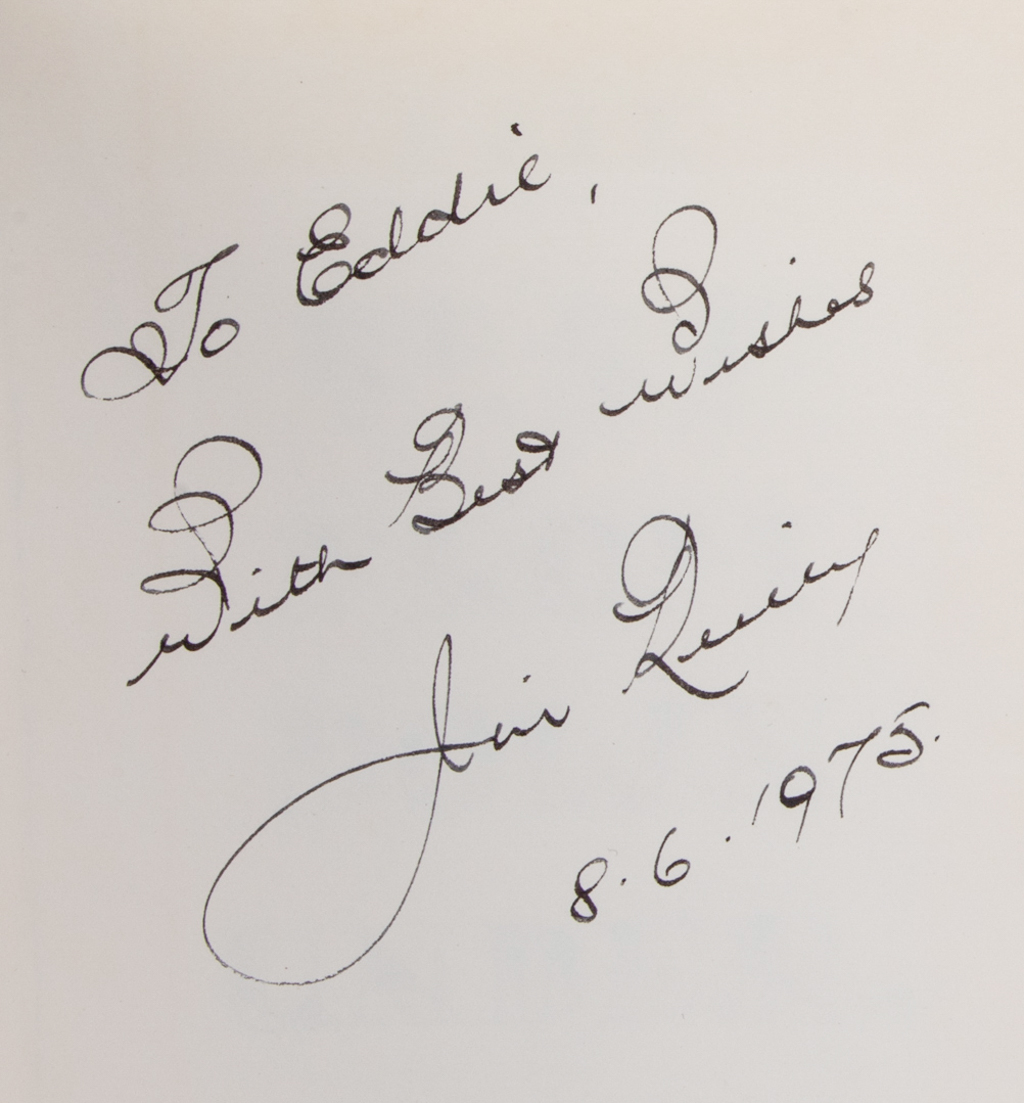 To Eddie,
With Best Wishes
Jim
8.6.1975.